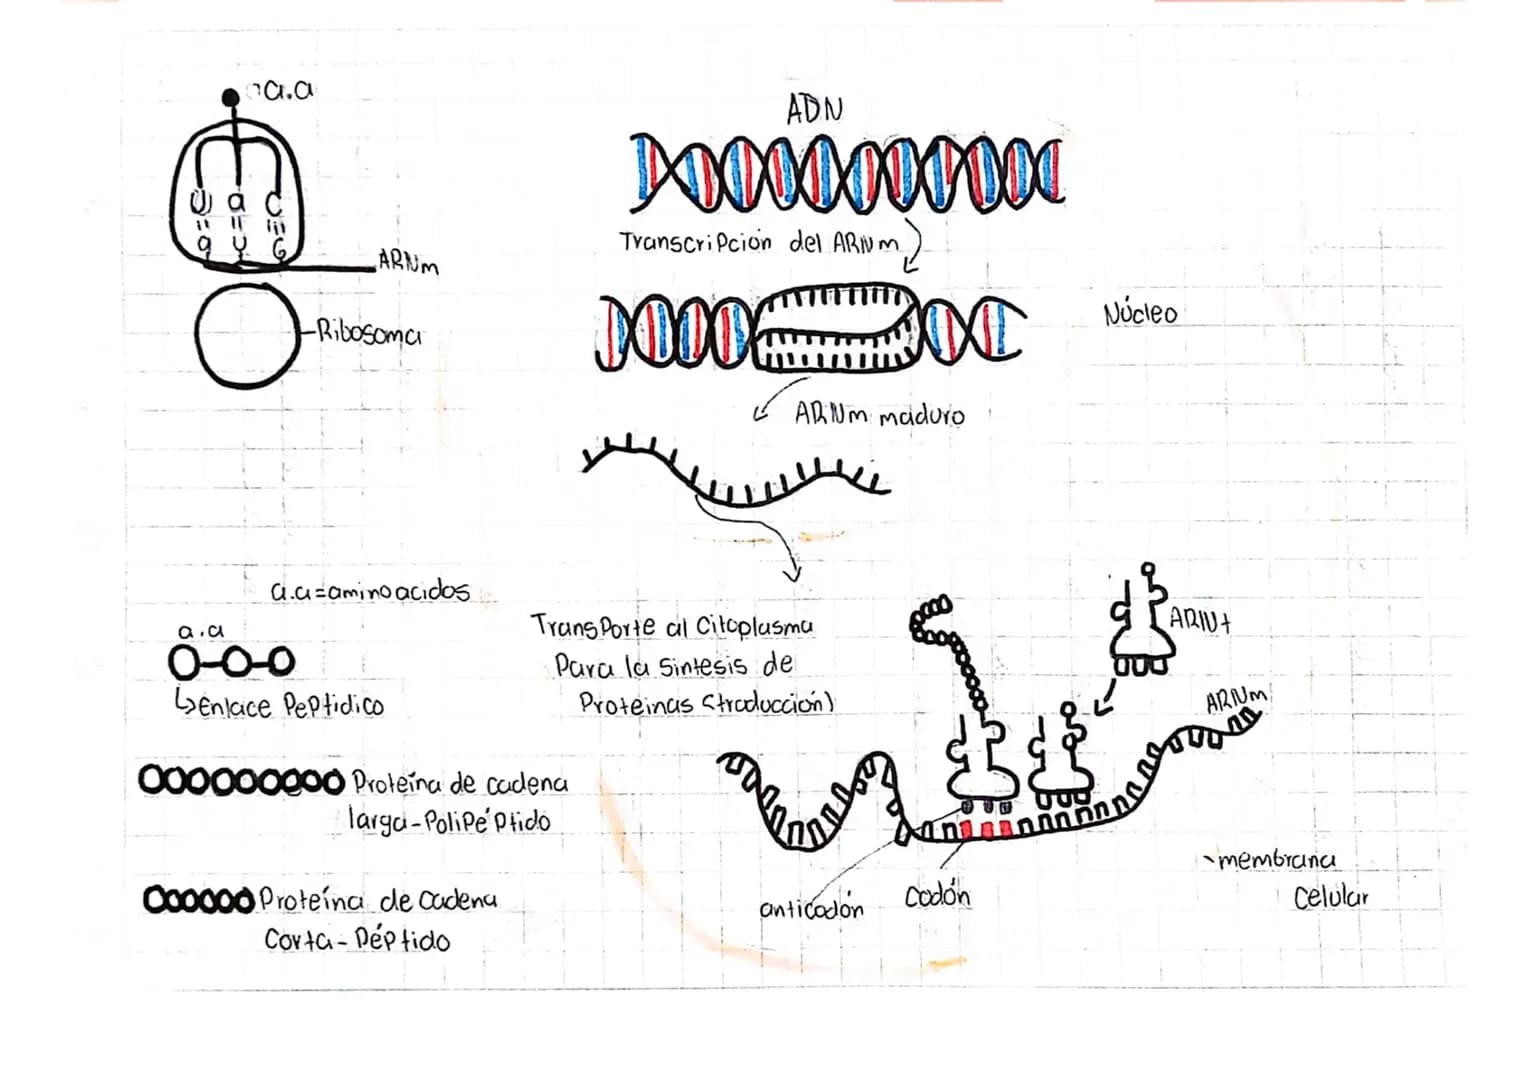 a.a
U a C
a U G
ARNm
Ribosoma
ADN
Transcripción del ARNm
Núcleo
ARNm maduro
a.a=aminoacidos
a.a
Enlace Peptidico
Proteína de cadena
larga-Polipéptido
Proteína de cadena
Corta-Péptido
Transporte al Citoplasma
Para la Sintesis de
Proteinas (traducción)
ARNt
ARNm
anticodón
Codón
membrana
Celular